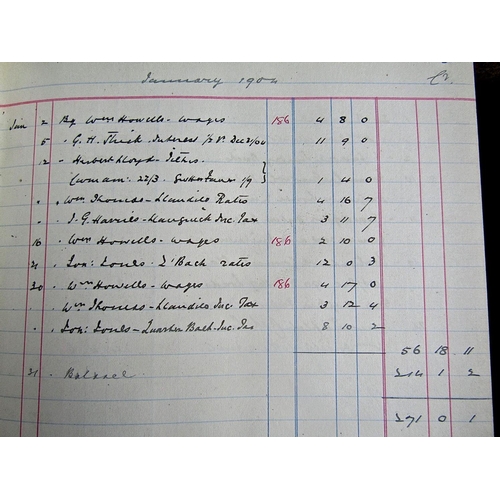 January 1904 Cr.
Jan 2 By Wm Howells - wages 186 4 8 0
5 " G. H. Interest Dec 31/04 11 9 0
12 " Herbert Lloyd - Tithes
22/3. 1/9 } 1 4 0
" " Wm Thomas - Llandilo Rates 4 16 7
" " J. G. Harries - Inc. Tax 3 11 7
16 " Wm Howells - wages 186 2 10 0
21 " Bach rates 12 0 3
30 " Wm Howells - wages 186 4 17 0
" Wm Thomas - Llandilo Inc. Tax 3 12 4
" Quarter Bach. Inc. Tax 8 10 2
56 18 11
31 " Balance 214 1 2
271 0 1